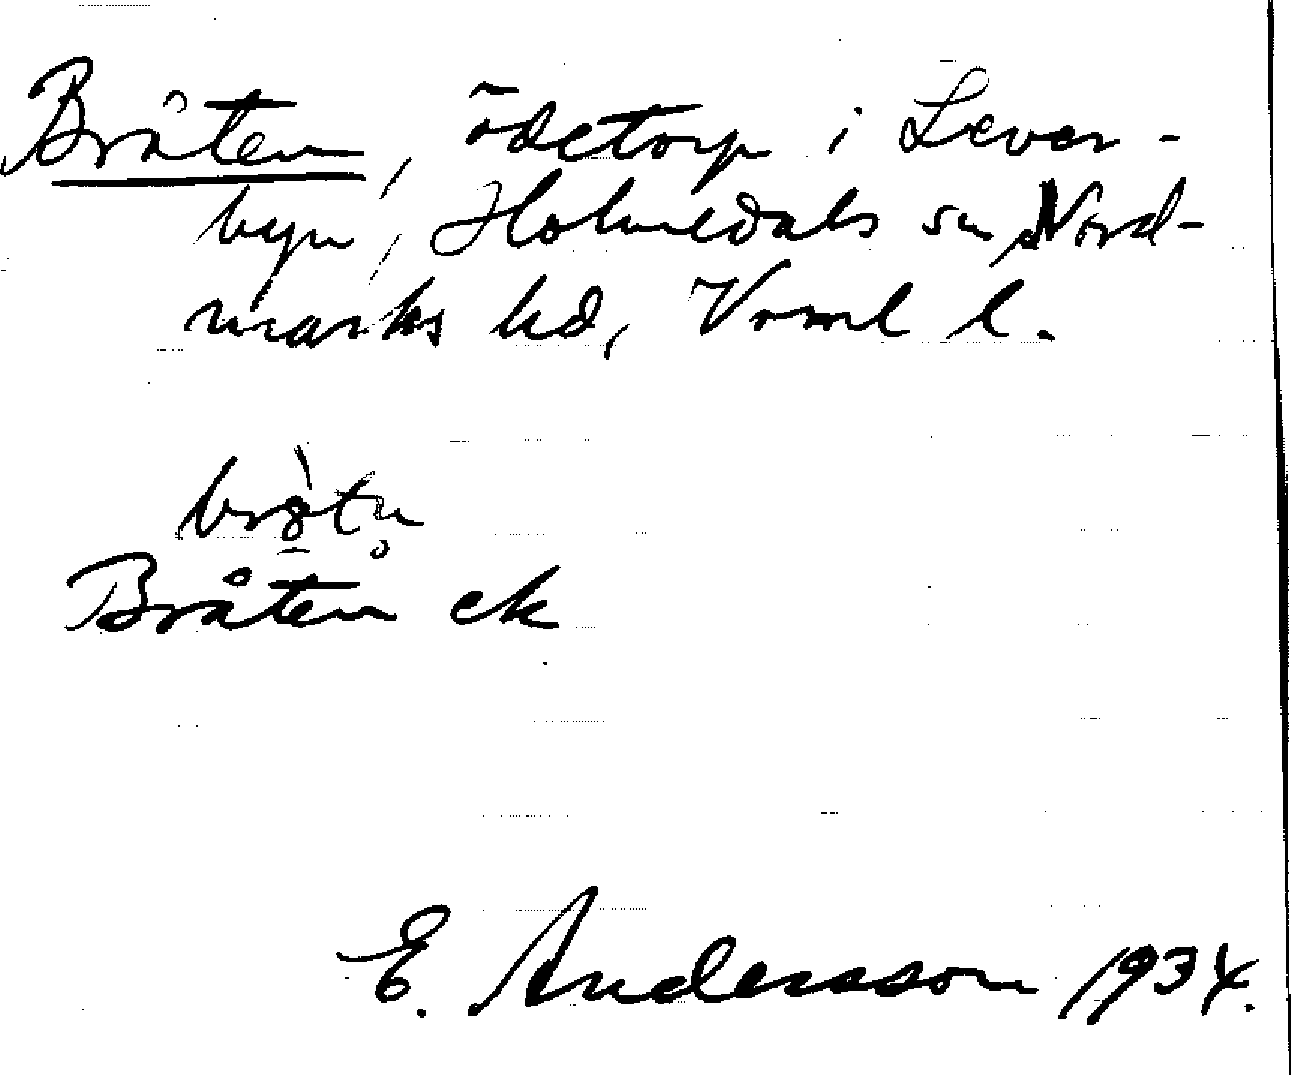 Bråten, ödetorp i Lever-
byn, Holmedals sn Nord-
marks hd, Vrml l.
Bråten ek
E. Andersson 1934.